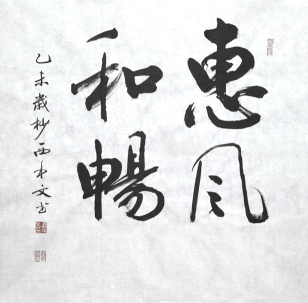 惠风
和暢
乙未歲杪西木文书